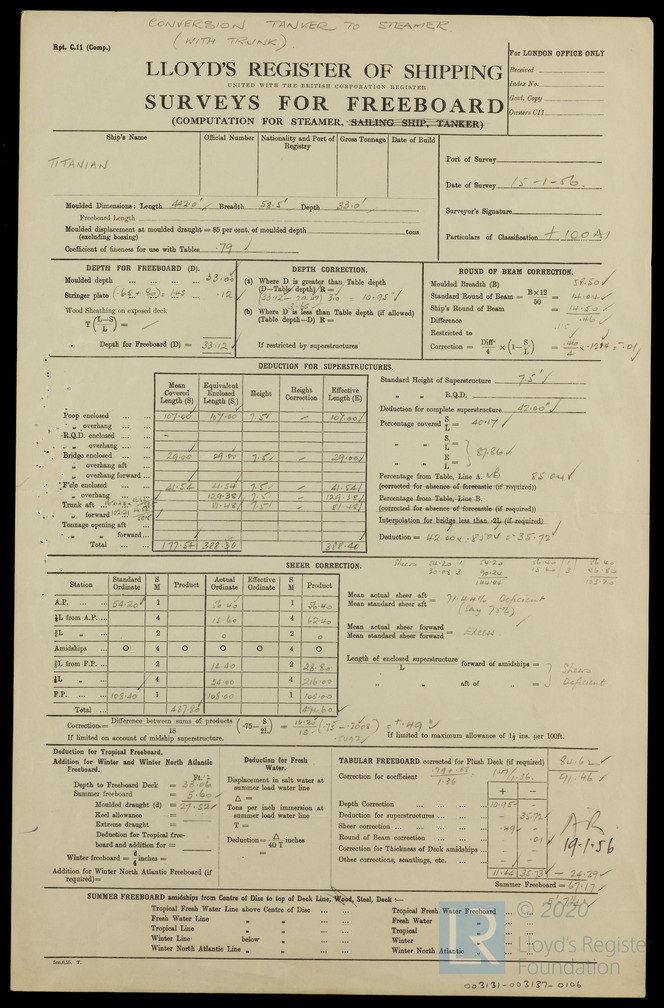 CONVERSION TANKER TO STEAMER
(WITH TRUNK).
Rpt. C.11 (Comp.)
For LONDON OFFICE ONLY
Received
Index No.
Govt. Copy
Owners C11
LLOYD'S REGISTER OF SHIPPING
UNITED WITH THE BRITISH CORPORATION REGISTER
SURVEYS FOR FREEBOARD
(COMPUTATION FOR STEAMER, SAILING SHIP, TANKER)
Ship's Name Official Number Nationality and Port of Registry Gross Tonnage Date of Build
TITANIAN
Port of Survey
Date of Survey 15-1-56.
Surveyor's Signature
Particulars of Classification + 100 A1
Moulded Dimensions: Length 442.0' Breadth 58.5' Depth 33.0'
Freeboard Length
Moulded displacement at moulded draught = 85 per cent. of moulded depth tons
(excluding bossing)
Coefficient of fineness for use with Tables .79
DEPTH FOR FREEBOARD (D).
Moulded depth 33.00
Stringer plate .12
Wood Sheathing on exposed deck
T (L-S/L) =
Depth for Freeboard (D) = 33.12
DEPTH CORRECTION.
(a) Where D is greater than Table depth
(D—Table depth) R =
= 10.95"
(b) Where D is less than Table depth (if allowed)
(Table depth—D) R =
If restricted by superstructures
ROUND OF BEAM CORRECTION.
Moulded Breadth (B) 58.50
Standard Round of Beam = B×12/50 = 14.04
Ship's Round of Beam = 14.50
Difference .46
Restricted to
Correction = Diff/4 × (1-S/L) = .46/4 × .1214 = -.01
DEDUCTION FOR SUPERSTRUCTURES.
Mean Covered Length (S) Equivalent Enclosed Length (S₁) Height Height Correction Effective Length (E)
Poop enclosed 107.00 107.00 7.5' 107.00
„ overhang
R.Q.D. enclosed -
„ overhang
Bridge enclosed 29.00 29.00 7.5' 29.00
„ overhang aft
„ overhang forward
F'cle enclosed 41.54 41.54 7.5' 41.54
„ overhang 129.38 7.5 129.38
Trunk aft 81.48 7.5' 81.48
„ forward
Tonnage opening aft
„ „ forward
Total 177.54 388.40 388.40
Standard Height of Superstructure 7.5'
„ „ R.Q.D.
Deduction for complete superstructure 42.00"
Percentage covered S/L = 40.17
„ „ S₁/L =
„ „ E/L = } 87.86
Percentage from Table, Line A. 85.04
(corrected for absence of forecastle (if required))
Percentage from Table, Line B.
(corrected for absence of forecastle (if required))
Interpolation for bridge less than .2L (if required)
Deduction = 42.00 × .8504 = -35.72
SHEER CORRECTION.
Station Standard Ordinate S M Product Actual Ordinate Effective Ordinate S M Product
A.P. 54.20 1 56.40 1 56.40
⅙L from A.P. 4 15.60 4 62.40
⅓L „ 2 0 2 0
Amidships O 4 O O O 4 O
⅓L from F.P. 2 14.40 2 28.80
⅙L „ 4 54.00 4 216.00
F.P. 108.40 1 108.00 1 108.00
Total 487.80
Mean actual sheer aft / Mean standard sheer aft = 71.4% Deficient
(say 75%)
Mean actual sheer forward / Mean standard sheer forward = Excess
Length of enclosed superstructure / L forward of amidships = } Sheer
„ „ aft of „ = } Deficient
Correction = Difference between sums of products / 18 (.75 - S/2L) = = +.49"
If limited on account of midship superstructure.
If limited to maximum allowance of 1½ ins. per 100ft.
Deduction for Tropical Freeboard.
Addition for Winter and Winter North Atlantic Freeboard.
Ft.
Depth to Freeboard Deck = 33.06
Summer freeboard = 5.60
Moulded draught (d) = 27.52
Keel allowance =
Extreme draught =
Deduction for Tropical freeboard and addition for =
Winter freeboard = d/4 inches =
Addition for Winter North Atlantic Freeboard (if required) =
Deduction for Fresh Water.
Displacement in salt water at summer load water line
Δ =
Tons per inch immersion at summer load water line
T =
Deduction = Δ/40 T inches
=
TABULAR FREEBOARD corrected for Flush Deck (if required) 84.62
Correction for coefficient 1.36 91.46
+ −
Depth Correction 10.95 -
Deduction for superstructures - 35.72
Sheer correction .49 -
Round of Beam correction - .01
Correction for Thickness of Deck amidships - -
Other corrections, scantlings, etc. - -
11.44 35.73 - 24.29
Summer Freeboard = 67.17
A.R.
19.1.56
SUMMER FREEBOARD amidships from Centre of Disc to top of Deck Line, Wood, Steel, Deck :—
Tropical Fresh Water Line above Centre of Disc
Fresh Water Line „ „
Tropical Line „ „
Winter Line below „
Winter North Atlantic Line „ „
Tropical Fresh Water Freeboard
Fresh Water „
Tropical „
Winter „
Winter North Atlantic „
LR
© 2020
Lloyd's Register
Foundation
003131-003187-0106